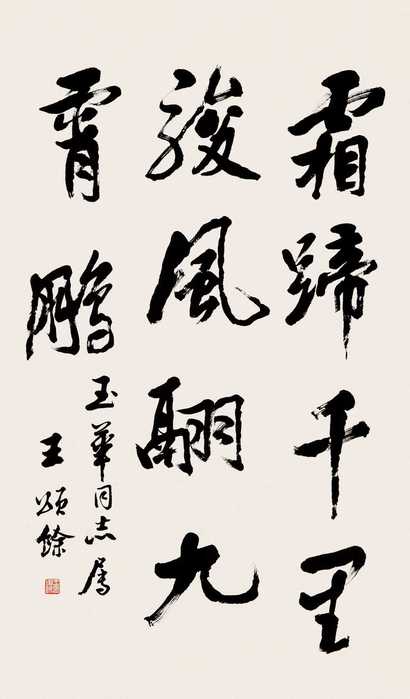 霜蹄千里
駿風翮九
霄鵬
玉華同志属
王頌餘